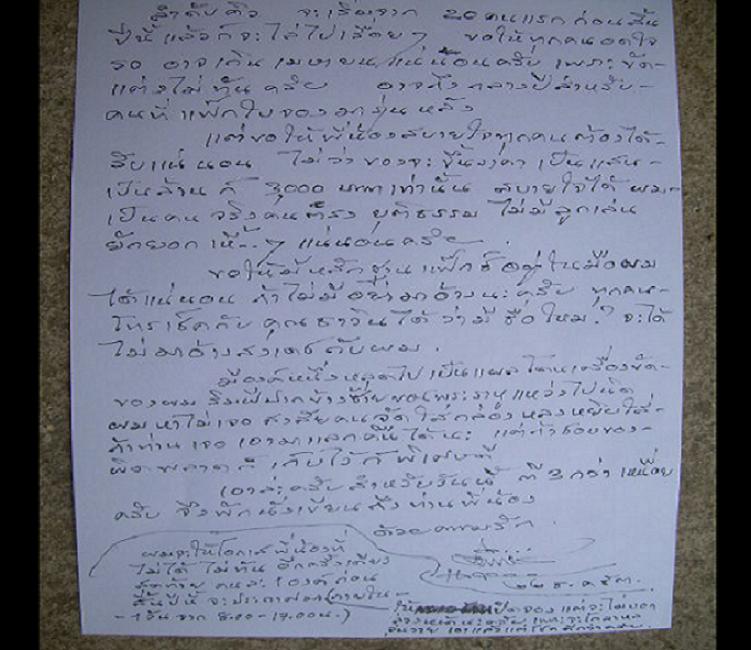 ลำดับคิว จะเริ่มจาก 20 คนแรก ก่อนสิ้น
ปีนี้ แล้วก็จะไล่ไปเรื่อยๆ ขอให้ทุกคนอดใจ
รอ อาจเกินเมษายนแน่นอนครับ เพราะขัด-
แต่งไม่ทันครับ อาจถึงกลางปีสำหรับ-
คนที่แฟ็กใบจองมารุ่นหลัง
แต่ขอให้พี่น้องสบายใจทุกคนต้องได้-
รับแน่นอน ไม่ว่าของจะขึ้นราคาเป็นแสน-
เป็นล้าน ก็ 3,000 บาทเท่านั้น สบายใจได้ ผม-
เป็นคนจริงคนตรง ยุติธรรม ไม่มีลูกเล่น
ยักยอก แน่นอนครับ.
ขอให้มีหลักฐานแฟ็กซ์อยู่ในมือผม
ได้แน่นอน ถ้าไม่มีอย่ามาอ้างนะครับ ทุกคน-
โทรเช็คกับคุณธาวินได้ว่ามีชื่อไหม.? จะได้
ไม่มาอ้างสงเดชกับผม.
มีองค์หนึ่งหลุดไปเป็นแผลโดนเครื่องขัด-
ของผม ริมฝีปากข้างซ้ายของพระราหูแหว่งไปนิด
ผมหาไม่เจอ สงสัยคนจัดใส่กล่องหลงหยิบใส่-
ถ้าท่านเจอ เอามาแลกคืนได้นะ แต่ถ้าชอบของ-
ผิดพลาดก็เก็บไว้ก็พิเศษดี
เอาล่ะครับสำหรับวันนี้ ตี 3 กว่า เหนื่อย
ครับ จึงพักนั่งเขียนถึงท่านพี่น้อง
ด้วยความรัก.
๒๒ ธ.ค. ๕๓.
ผมจะให้โอกาสพี่น้องที่
ไม่ได้ ไม่ทัน อีกครั้งเดียว
สุดท้าย คนละ 1 องค์ ก่อน
สิ้นปีนี้ จะประกาศออกภายใน-
-1 วัน จาก 8.00-17.00 น.)
เปิดจอง แต่จะไม่บอก